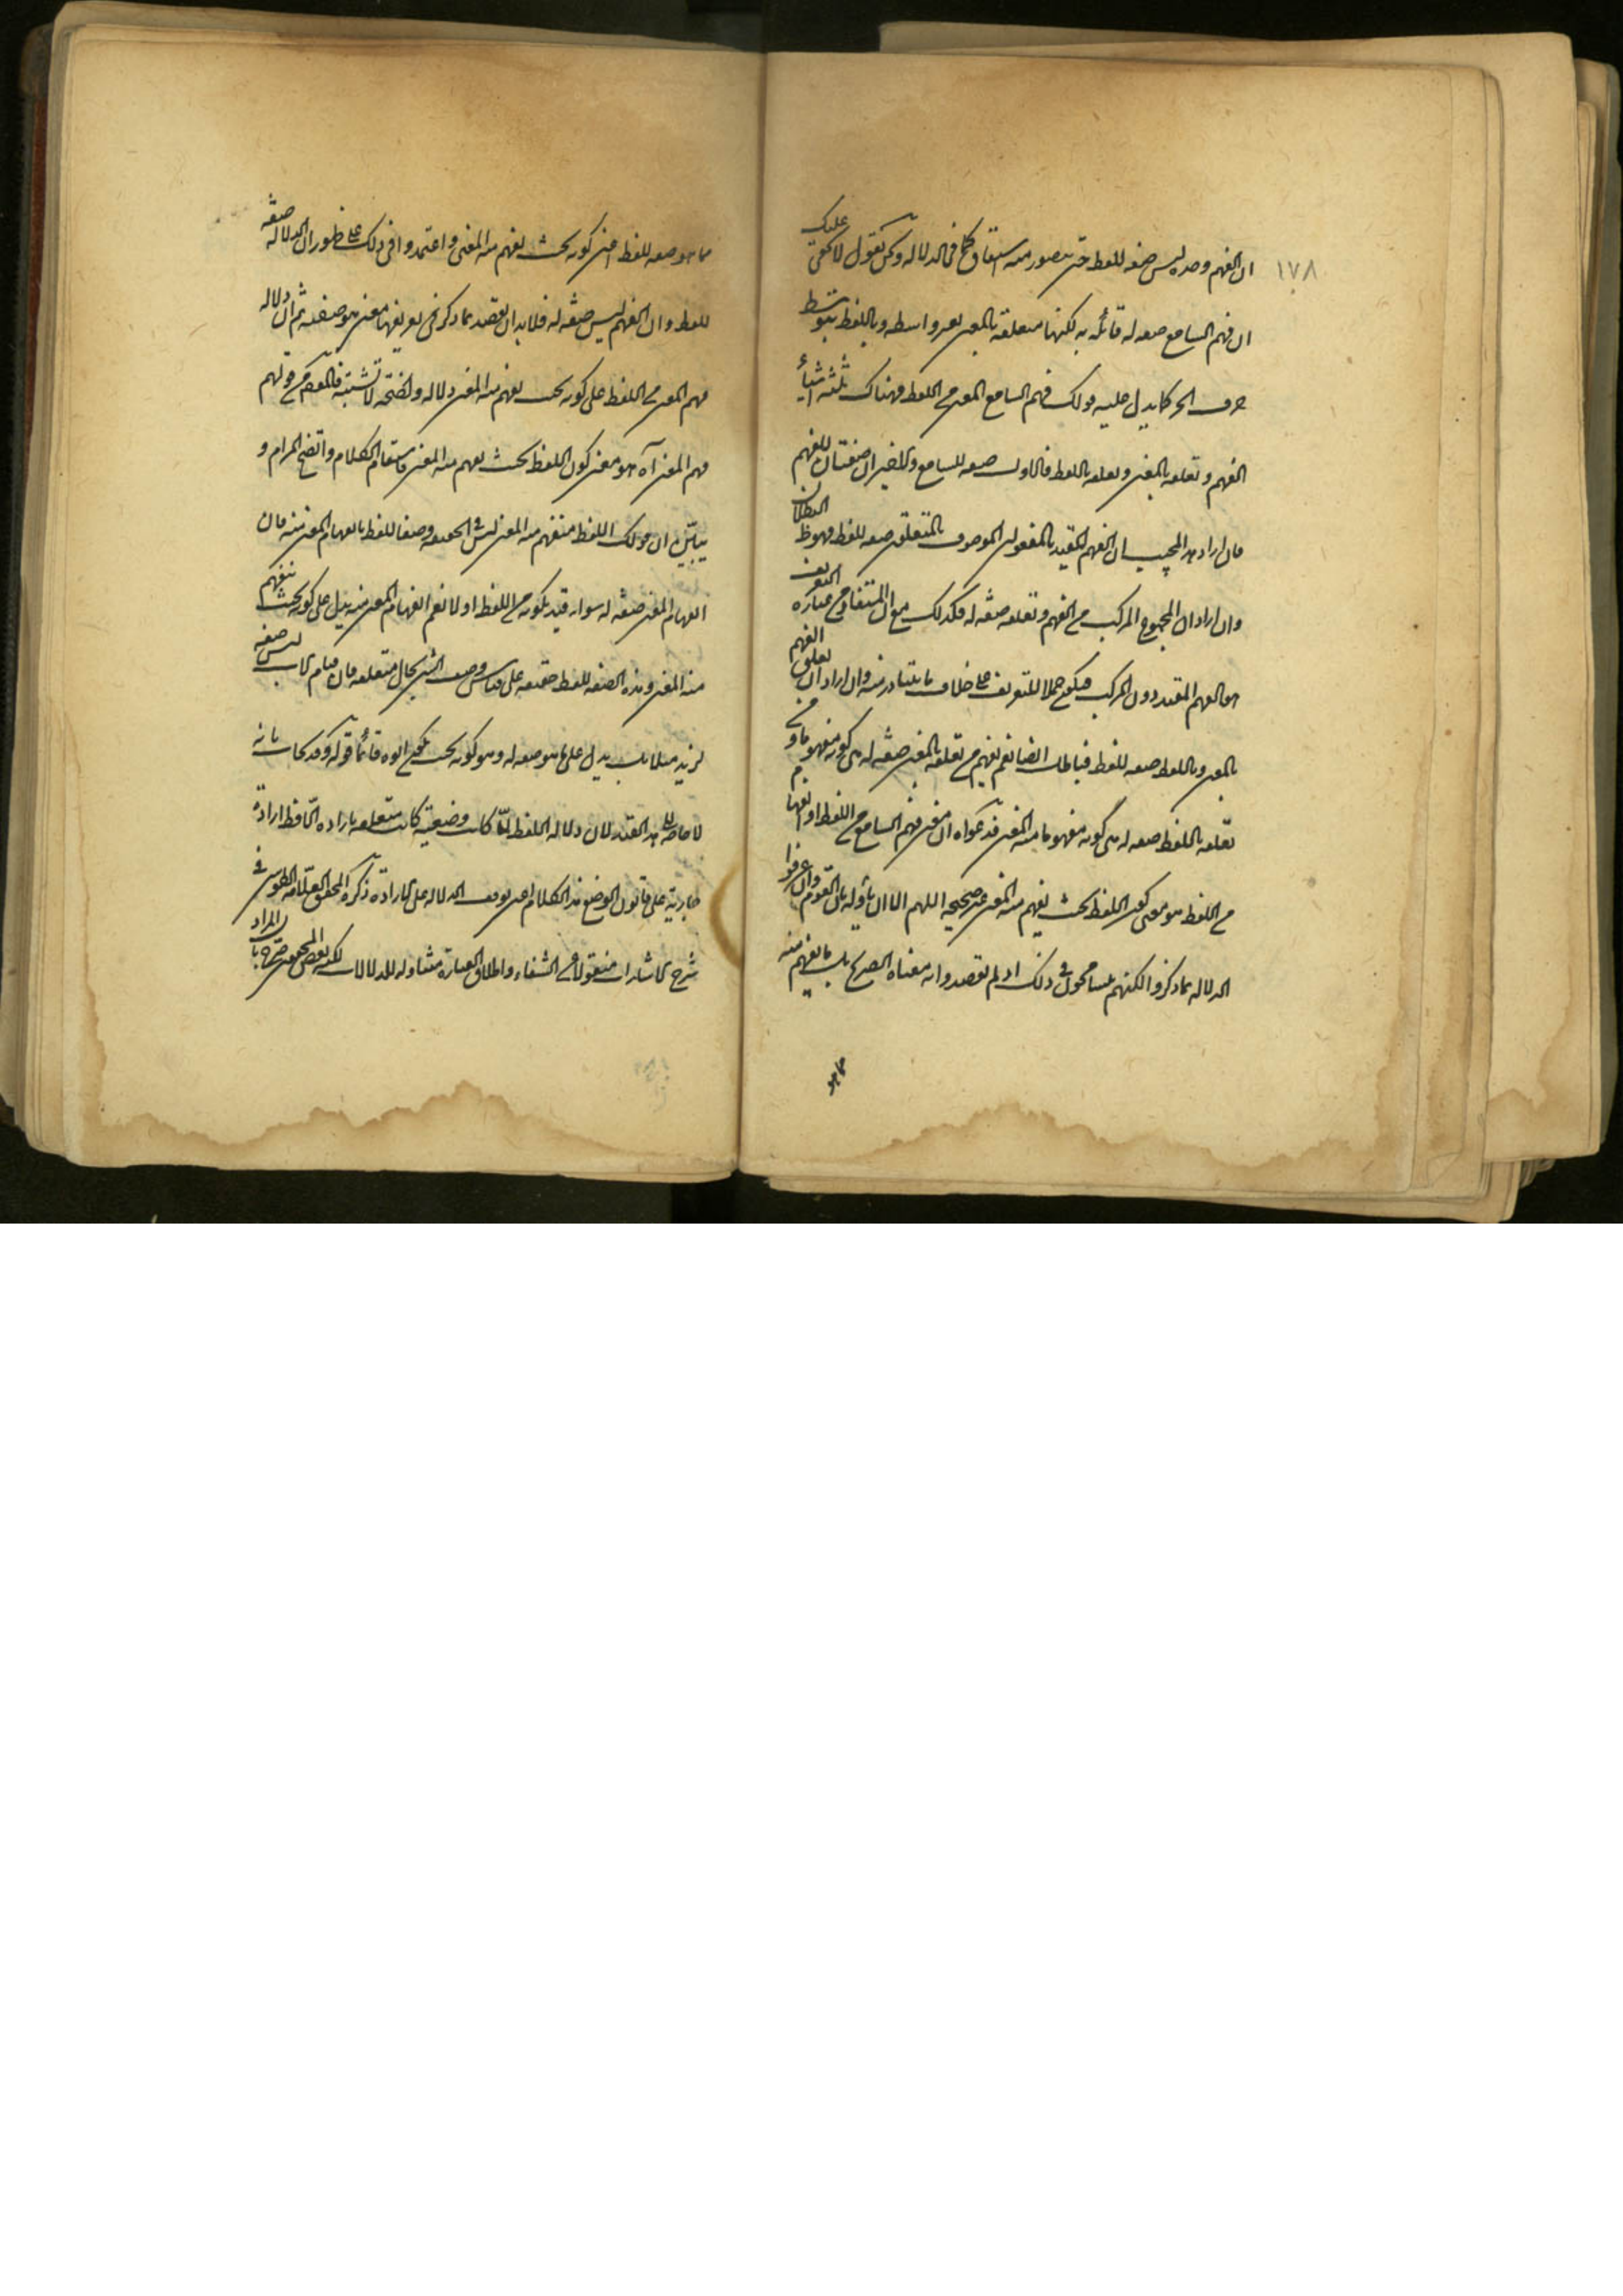 ١٧٨
ان الفهم وحده ليس صفه للفظ حتى يتصور منه اشتقاق كما فى الدلاله ونحن نقول لا يخفى عليك
ان فهم السامع صفه له قائمه به لكنها متعلقه بالمعنى بغير واسطه وباللفظ بتوسط
حرف الجر كما يدل عليه قولك فهم السامع المعنى من اللفظ فهناك ثلثه اشياء
الفهم وتعلقه بالمعنى وتعلقه باللفظ فالاول صفه للسامع والاخيران صفتان للفهم
فان اراد هذا المجيب ان الفهم المقيد بالمفعول الموصوف بالمتعلق صفه للفظ فهو ظ البطلان
وان اراد ان المجموع المركب من الفهم وتعلقه صفه له فكذلك مع ان المستفاد من عباره التعريف
هو الفهم المقيد دون المركب فيكون حملا للتعريف على خلاف ما يتبادر منه وان اراد ان تعلق الفهم
بالمعنى وباللفظ صفه للفظ فباطل ايضا نعم يفهم من تعلقه بالمعنى صفه له هى كونه مفهوما ومن
تعلقه باللفظ صفه له هى كونه مفهوما منه المعنى فدعواه ان معنى فهم السامع من اللفظ او انفهامه
من اللفظ هو معنى كون اللفظ بحيث يفهم منه المعنى غير صحيحه اللهم الا ان يأول بان القوم وان عرفوا
الدلاله بما ذكر والكنهم يتسامحون فى ذلك اذ لم يقصدوا به معناه الصريح بل ما يفهم منه
مما هو
مما هو صفه للفظ اعنى كونه بحيث يفهم منه المعنى واعتمدوا فى ذلك على ظهور ان الدلاله صفه
للفظ وان الفهم ليس صفه له فلا بد ان يقصد بما ذكر فى تعريفها معنى هو صفته ثم ان دلاله
فهم المعنى من اللفظ على كونه بحيث يفهم منه المعنى دلاله واضحه لا تشتبه فالمقصود من قولهم
فهم المعنى آه هو معنى كون اللفظ بحيث يفهم منه المعنى فاستقام الكلام واتضح المرام و
يتبين ان قولك اللفظ منفهم منه المعنى ليس فى الحقيقه وصفا للفظ بانفهام المعنى منه فان
انفهام المعنى صفه له سواء قيد بكونه من اللفظ او لا نعم انفهام المعنى منه يدل على كونه بحيث ينفهم
منه المعنى وهذه الصفه للفظ حقيقه على قياس وصف الشئ بحال متعلقه فان قيام الاب ليس صفه
لزيد مثلا بل يدل على ما هو صفه له وهو كونه بحيث يكون ابوه قائما قوله وقد يجاب بانه
لا حاجه الى هذا القيد لان دلاله اللفظ لما كانت وضعيه كانت متعلقه باراده اللافظ اراده
جاريه على قانون الوضع هذا الكلام اعنى توقف الدلاله على الاراده ذكره المحقق العلامه الطوسى فى
شرح الاشارات منقولا عن الشفاء واطلاق العباره متناوله للدلالات لكن بعض المحققين صرح بان المراد